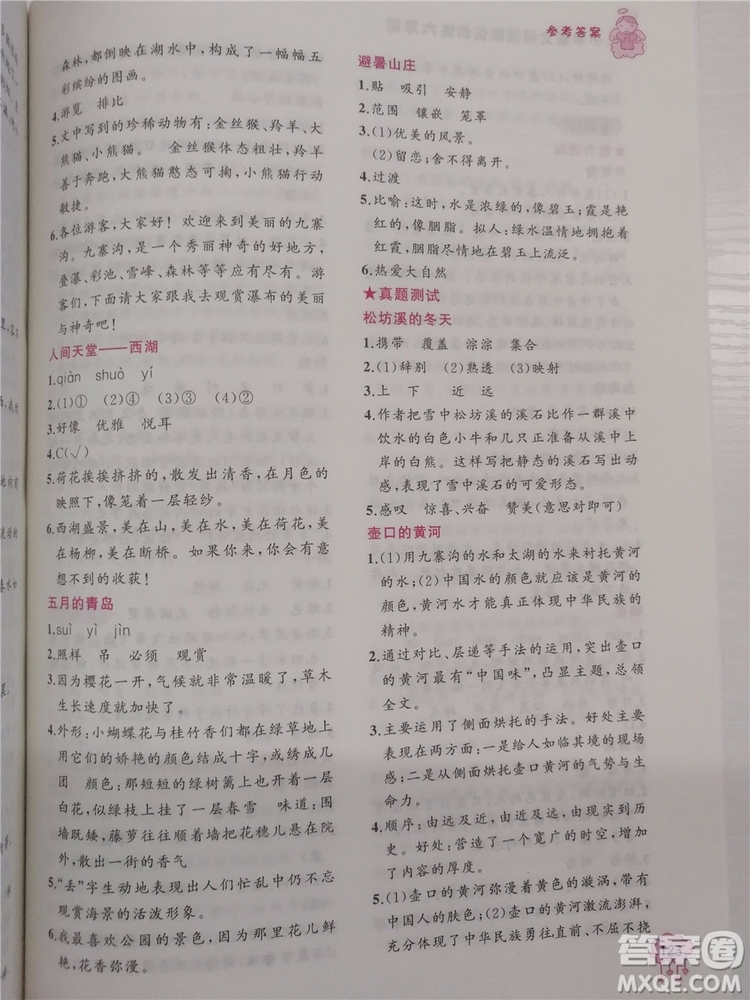 参考答案
森林，都倒映在湖水中，构成了一幅幅五
彩缤纷的图画。
4.游览 排比
5.文中写到的珍稀动物有：金丝猴、羚羊、大
熊猫、小熊猫。 金丝猴体态粗壮，羚羊
善于奔跑，大熊猫憨态可掬，小熊猫行动
敏捷。
6.各位游客，大家好！欢迎来到美丽的九寨
沟。九寨沟，是一个秀丽神奇的好地方，
叠瀑、彩池、雪峰、森林等等应有尽有。游
客们，下面请大家跟我去观赏瀑布的美丽
与神奇吧！
人间天堂——西湖
1.qiàn shuò yí
2.(1)① (2)④ (3)③ (4)②
3.好像 优雅 悦耳
4.C(√)
5.荷花挨挨挤挤的，散发出清香，在月色的
映照下，像笼着一层轻纱。
6.西湖盛景，美在山，美在水，美在荷花，美
在杨柳，美在断桥。如果你来，你会有意
想不到的收获！
五月的青岛
1.suì yì jìn
2.照样 吊 必须 观赏
3.因为樱花一开，气候就非常温暖了，草木
生长速度就加快了。
4.外形：小蝴蝶花与桂竹香们都在绿草地上
用它们的娇艳的颜色结成十字，或绣成几
团 颜色：那短短的绿树篱上也开着一层
白花，似绿枝上挂了一层春雪 味道：围
墙既矮，藤萝往往把花穗儿悬在院
外，散出一街的香气
5.“丢”字生动地表现出人们忙乱中仍不忘
观赏海景的活泼形象。
6.我最喜欢公园的景色，因为那里花儿鲜
艳，花香弥漫。
避暑山庄
1.贴 吸引 安静
2.范围 镶嵌 笼罩
3.(1)优美的风景。
(2)留恋；舍不得离开。
4.过渡
5.比喻：这时，水是浓绿的，像碧玉；霞是艳
红的，像胭脂。拟人：绿水温情地拥抱着
红霞，胭脂尽情地在碧玉上流泛。
6.热爱大自然
★真题测试
松坊溪的冬天
1.携带 覆盖 淙淙 集合
2.(1)辞别 (2)熟透 (3)映射
3.上 下 近 远
4.作者把雪中松坊溪的溪石比作一群溪中
饮水的白色小牛和几只正准备从溪中
上岸的白熊。这样写把静态的溪石写出动
感，表现了雪中溪石的可爱形态。
5.感叹 惊喜、兴奋 赞美(意思对即可)
壶口的黄河
1.(1)用九寨沟的水和太湖的水来衬托黄河
的水；(2)中国水的颜色就应该是黄河的
颜色，黄河水才能真正体现中华民族的
精神。
2.通过对比、层递等手法的运用，突出壶口
的黄河最有“中国味”，凸显主题，总领
全文。
3.主要运用了侧面烘托的手法。好处主要
表现在两方面：一是给人如临其境的现场
感；二是从侧面烘托壶口黄河的气势与生
命力。
4.顺序：由远及近，由近及远，再由远及
近。好处：营造了一个宽广的时空，增加
了内容的厚度。
5.(1)壶口的黄河弥漫着黄色的漩涡，带有
中国人的肤色；(2)壶口的黄河激流澎湃，
充分体现了中华民族勇往直前、不屈不挠
答案圈
MXQE.COM